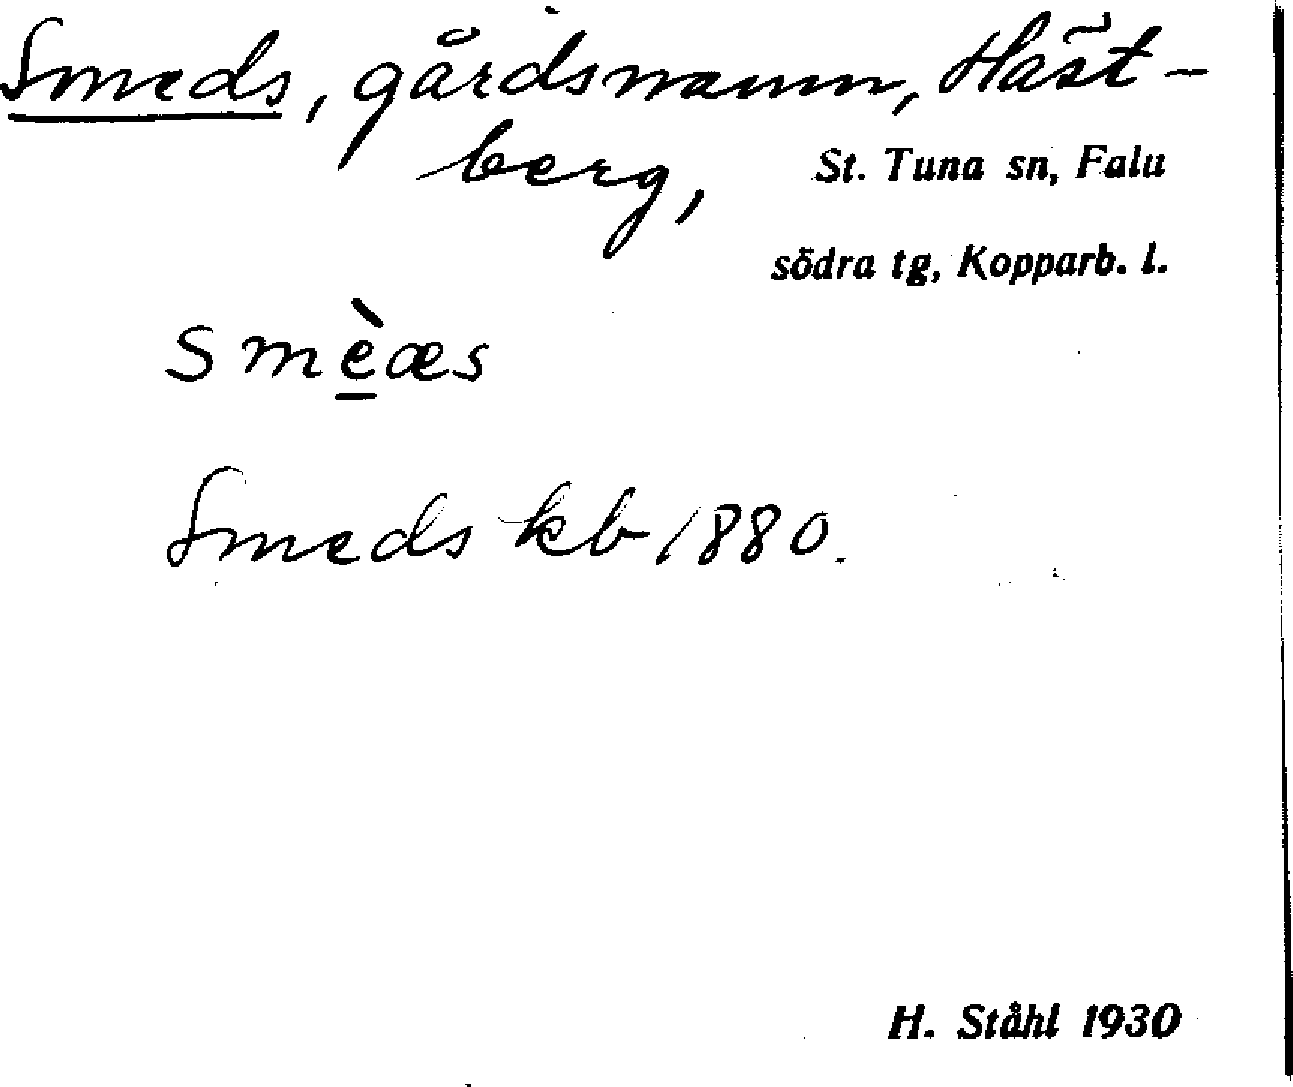 Smeds, gårdsnamn, Häst-
berg, St. Tuna sn, Falu
södra tg, Kopparb. l.
smèæs
Smeds kb 1880.
H. Ståhl 1930